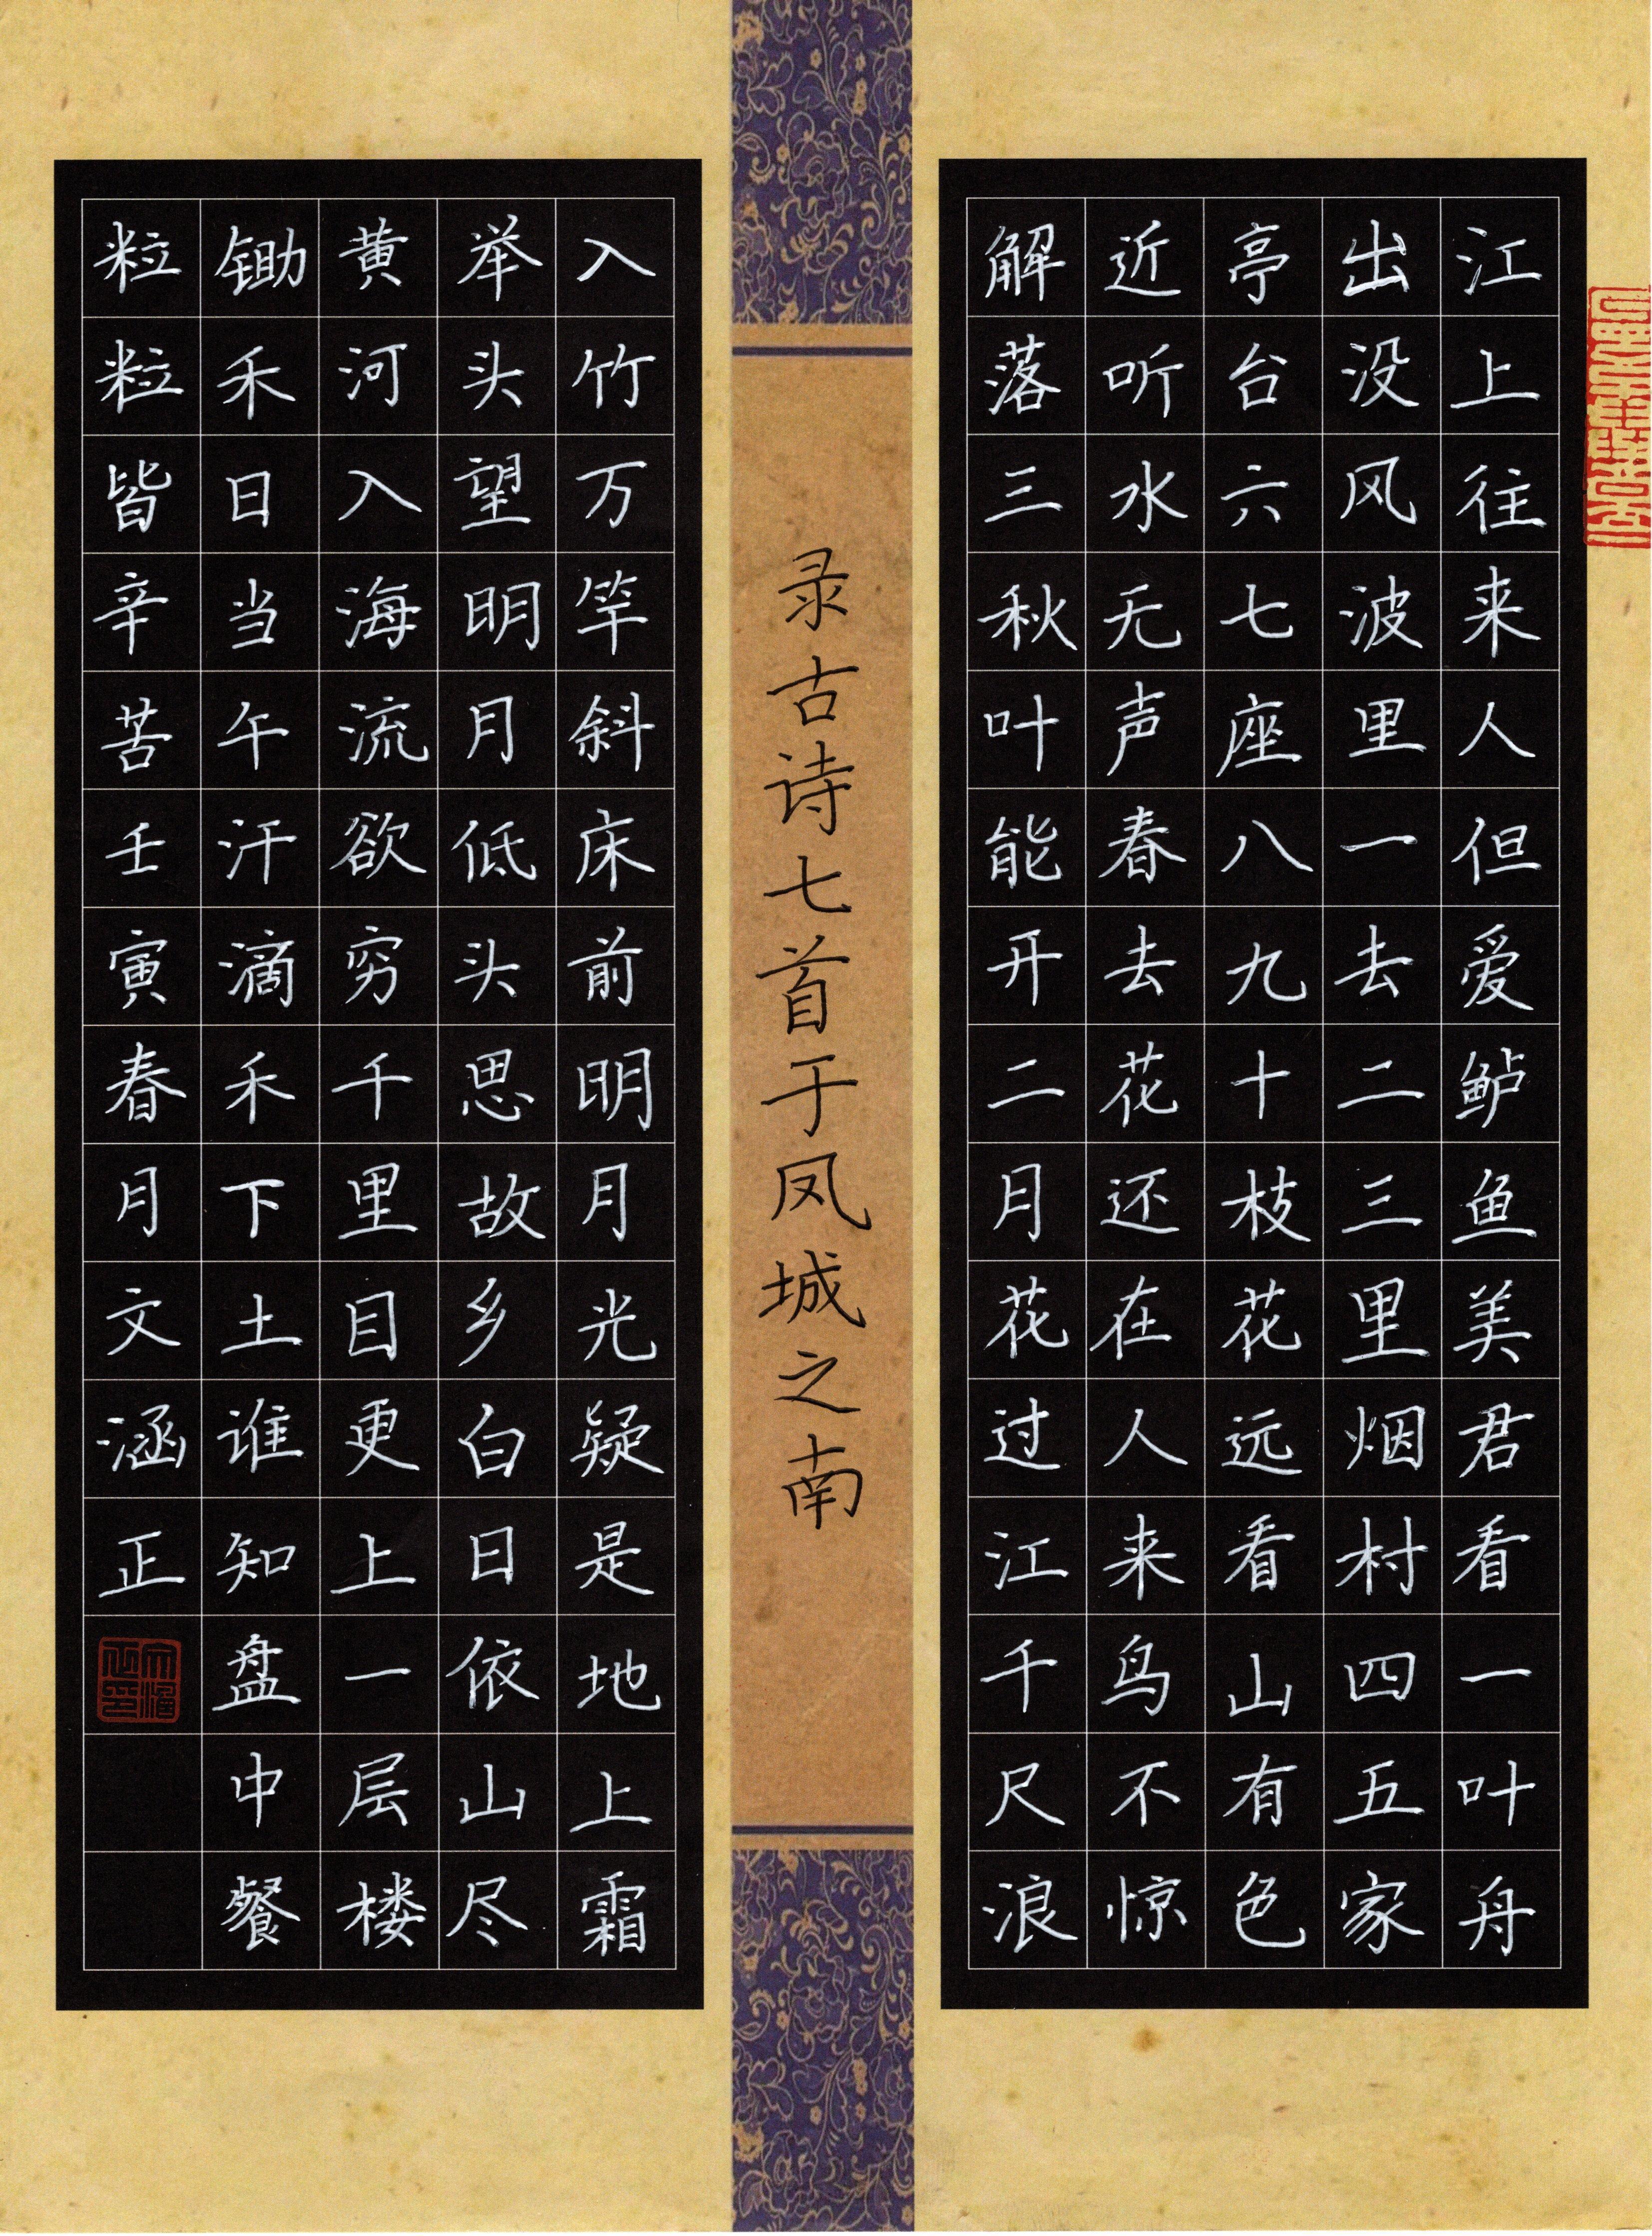 江上往来人但爱鲈鱼美君看一叶舟
出没风波里一去二三里烟村四五家
亭台六七座八九十枝花远看山有色
近听水无声春去花还在人来鸟不惊
解落三秋叶能开二月花过江千尺浪
录古诗七首于凤城之南
入竹万竿斜床前明月光疑是地上霜
举头望明月低头思故乡白日依山尽
黄河入海流欲穷千里目更上一层楼
锄禾日当午汗滴禾下土谁知盘中餐
粒粒皆辛苦壬寅春月文涵正